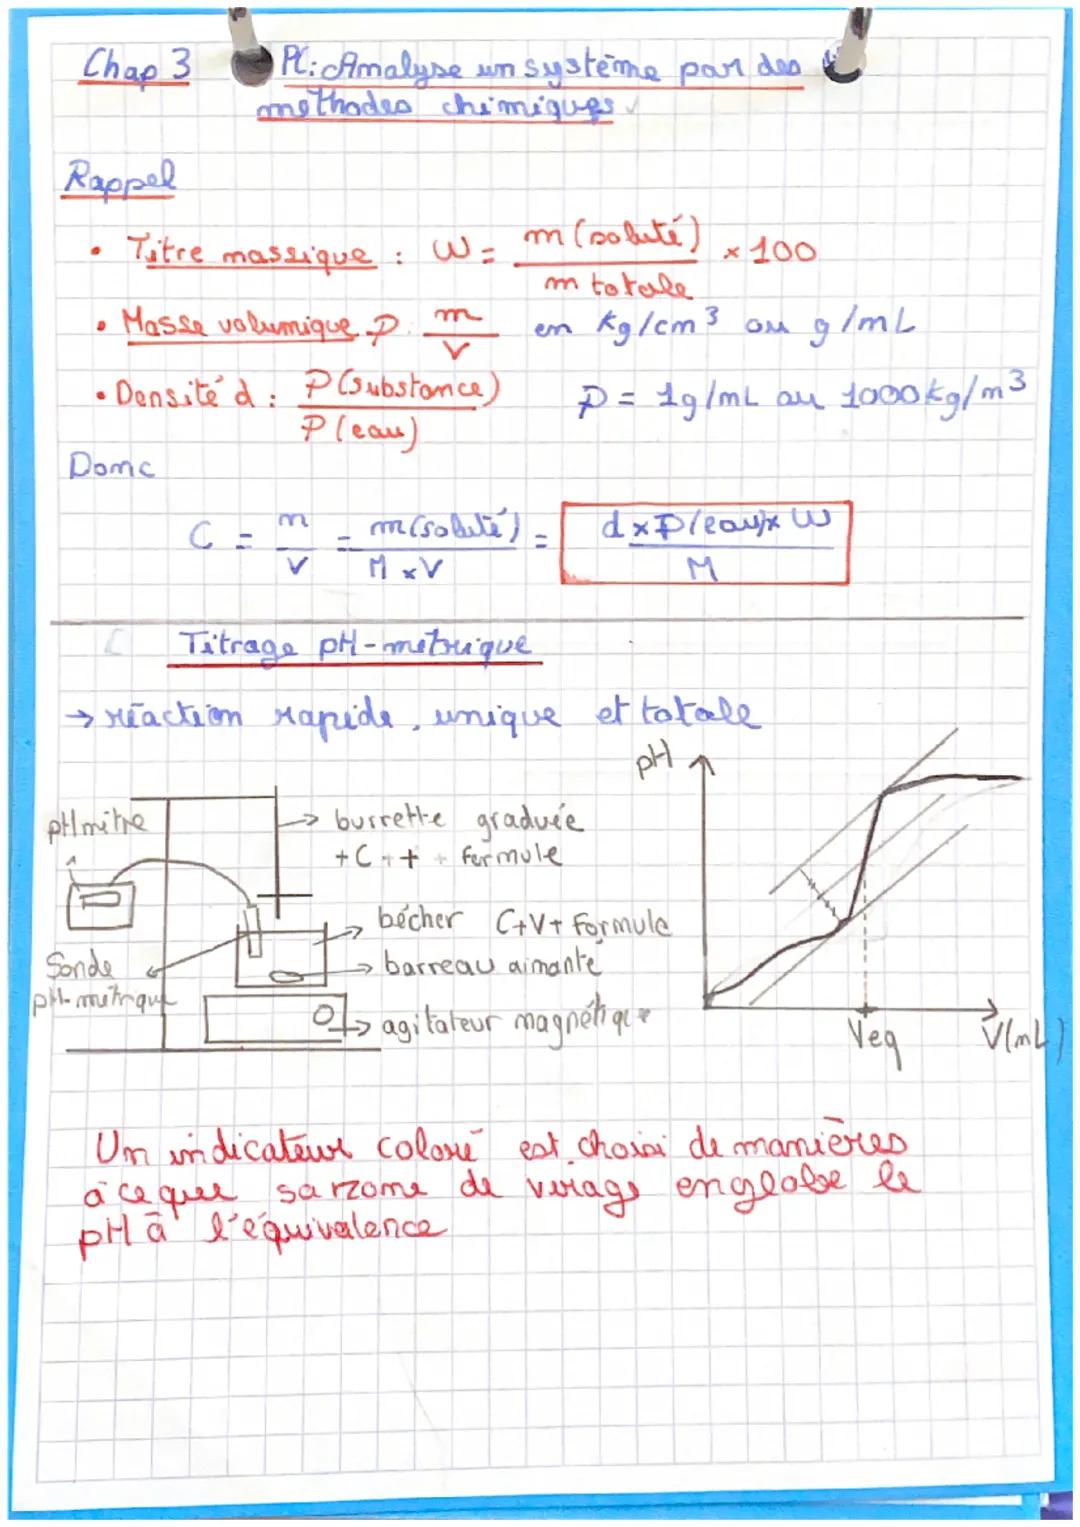 Chap 3 PC: Analyse un système par des
méthodes chimiques
Rappel
• Titre massique : W = m (soluté) / m totale × 100
• Masse volumique ρ: m / V en kg/cm³ ou g/mL
• Densité d : ρ(substance) / ρ(eau) ρ = 1g/mL ou 1000kg/m³
Donc
C = n / V = m(soluté) / M × V = d × ρ(eau) × W / M
Titrage pH-métrique
→ réaction rapide, unique et totale
pH
pHmètre
→ burrette graduée
+C + + formule
bécher C+V+ Formule
barreau aimanté
Sonde
pH-métrique
agitateur magnétique
Veq
V(mL)
Un indicateur coloré est choisi de manières
à ce que sa zone de virage englobe le
pH à l'équivalence